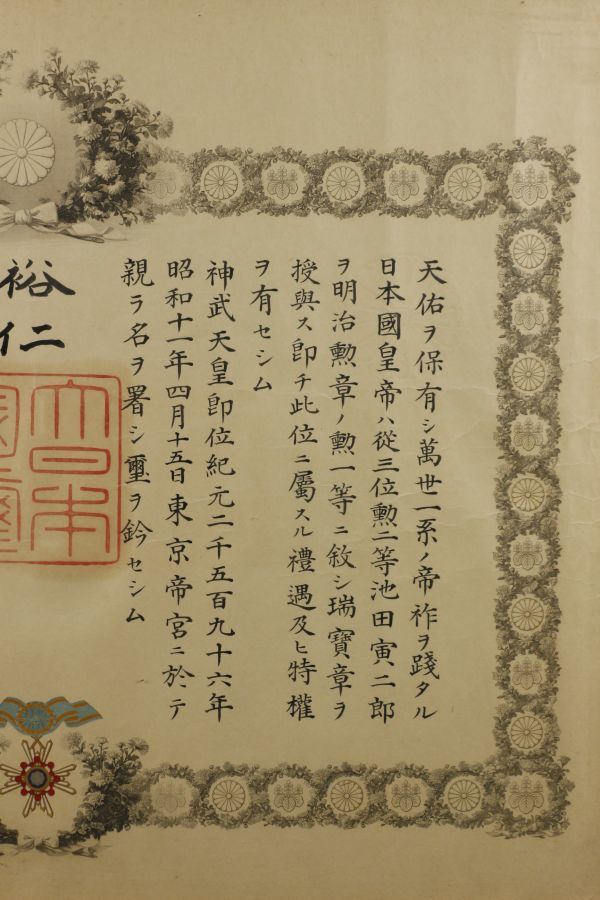 天佑ヲ保有シ萬世一系ノ帝祚ヲ踐タル
日本國皇帝ハ從三位勲二等池田寅二郎
ヲ明治勲章ノ勲一等ニ敘シ瑞寶章ヲ
授與ス卽チ此位ニ屬スル禮遇及ヒ特權
ヲ有セシム
神武天皇卽位紀元二千五百九十六年
昭和十一年四月十五日東京帝宮ニ於テ
親ラ名ヲ署シ璽ヲ鈐セシム
裕仁
大日本
國璽